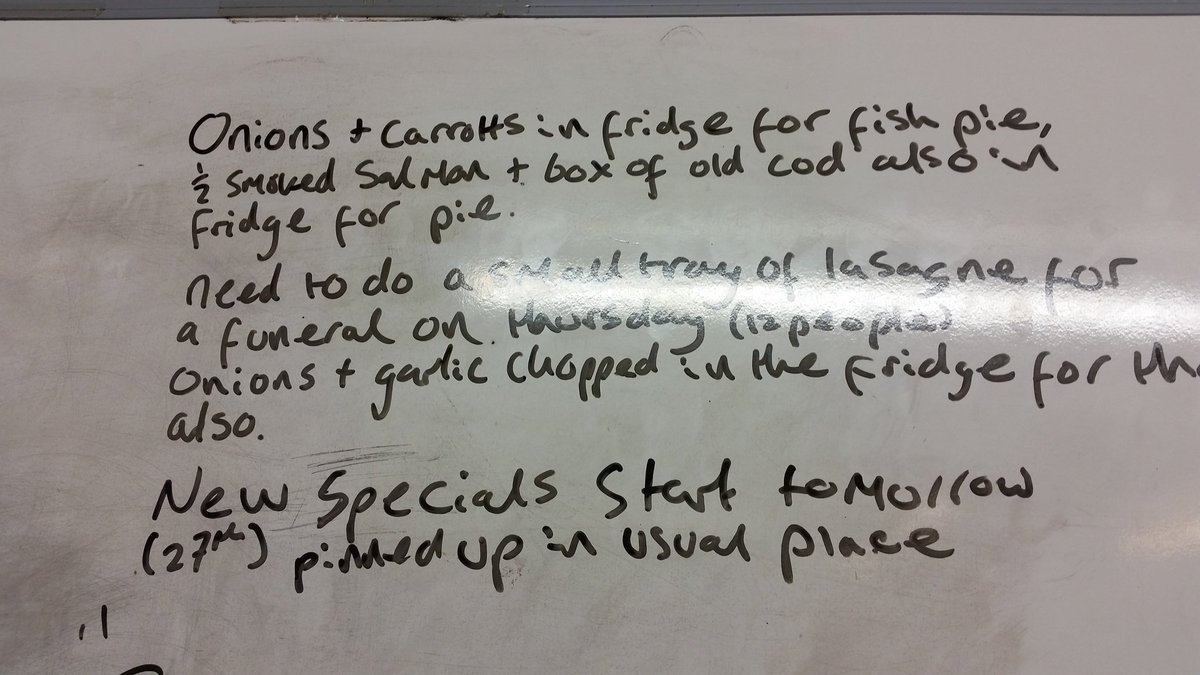 Onions + Carrotts in fridge for fish pie,
½ smoked Salman + box of old cod also in
fridge for pie.
need to do a small tray of lasagne for
a funeral on Thursday (12 people)
onions + garlic chopped in the fridge for
also.
New Specials Start tomorrow
(27th) pinned up in usual place